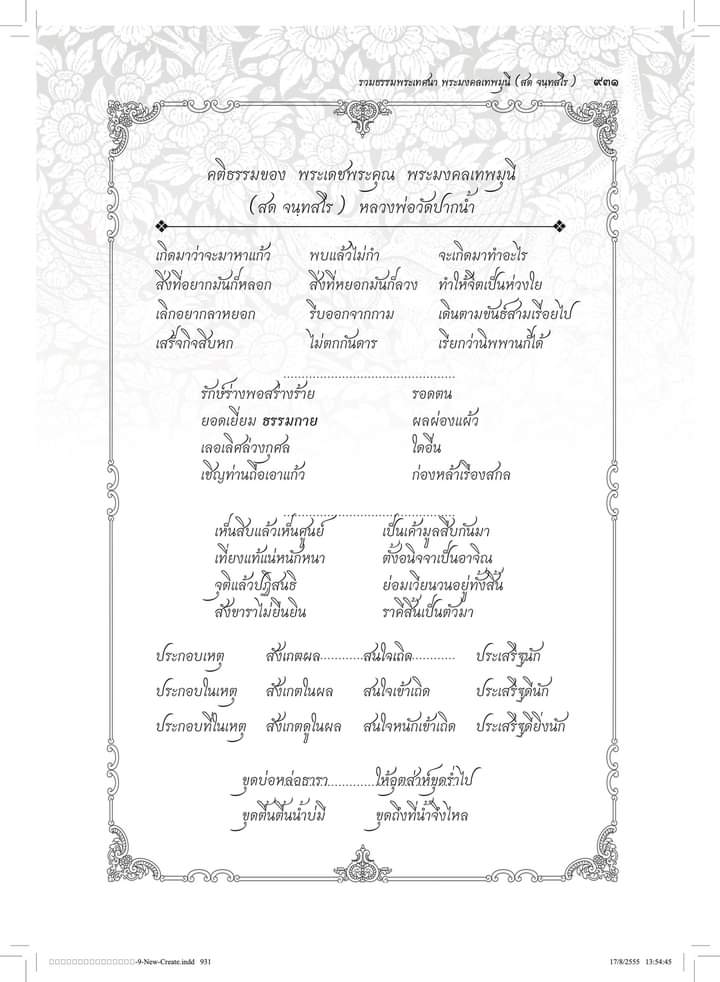 รวมธรรมพระเทศนา พระมงคลเทพมุนี (สด จนฺทสโร) ๙๓๑
คติธรรมของ พระเดชพระคุณ พระมงคลเทพมุนี
(สด จนฺทสโร) หลวงพ่อวัดปากน้ำ
เกิดมาว่าจะมาหาแก้ว พบแล้วไม่กำ จะเกิดมาทำอะไร
สิ่งที่อยากมันก็หลอก สิ่งที่หยอกมันก็ลวง ทำให้จิตเป็นห่วงใย
เลิกอยากลาหยอก รีบออกจากกาม เดินตามขันธ์สามเรื่อยไป
เสร็จกิจสิบหก ไม่ตกกันดาร เรียกว่านิพพานก็ได้
รักษ์ร่างพอสร้างร้าย รอดตน
ยอดเยี่ยม ธรรมกาย ผลผ่องแผ้ว
เลอเลิศล่วงกุศล ใดอื่น
เชิญท่านถือเอาแก้ว ก่องหล้าเรืองสกล
เห็นสิบแล้วเห็นศูนย์ เป็นเค้ามูลสืบกันมา
เที่ยงแท้แน่นักหนา ตั้งอนิจจาเป็นอาจิณ
จุติแล้วปฏิสนธิ ย่อมเวียนวนอยู่ทั้งสิ้น
สังขาราไม่ยืนยิน ราคีสิ้นเป็นตัวมา
ประกอบเหตุ สังเกตผล............สนใจเถิด............ ประเสริฐนัก
ประกอบในเหตุ สังเกตในผล สนใจเข้าเถิด ประเสริฐดีนัก
ประกอบที่ในเหตุ สังเกตดูในผล สนใจหนักเข้าเถิด ประเสริฐดียิ่งนัก
ขุดบ่อหล่อธารา..............ให้อุตส่าห์ขุดร่ำไป
ขุดตื้นตื้นน้ำบ่มี ขุดถึงที่น้ำจึงไหล
-9-New-Create.indd 931 17/8/2555 13:54:45